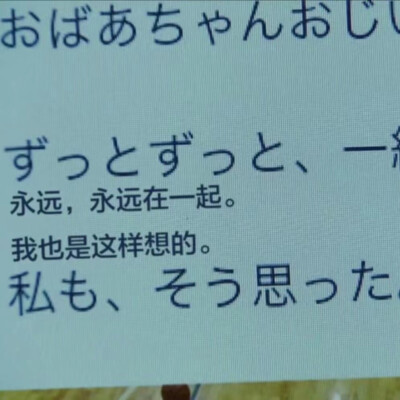 おばあちゃんおじい
ずっとずっと、一緒
永远，永远在一起。
我也是这样想的。
私も、そう思った